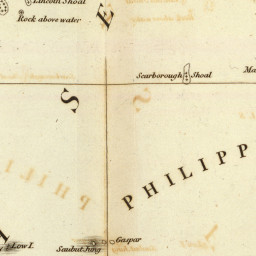 Lincoln Shoal
Rock above water
E
Scarborough Shoal
Ma
S
PHILIPP
Low I.
Saubut Jung
Gaspar